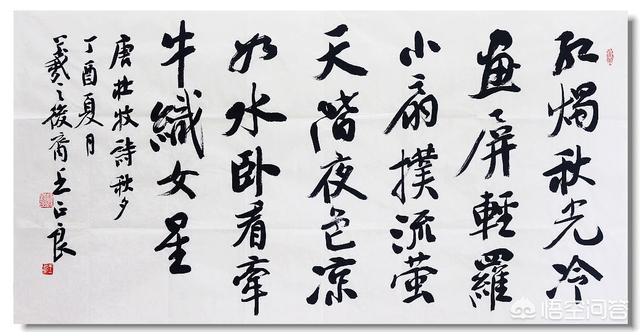 红燭秋光冷
画屏輕羅
小扇撲流萤
天階夜色凉
如水卧看牵
牛織女星
唐杜牧詩秋夕
丁酉夏月
羲之後裔王正良
悟空问答